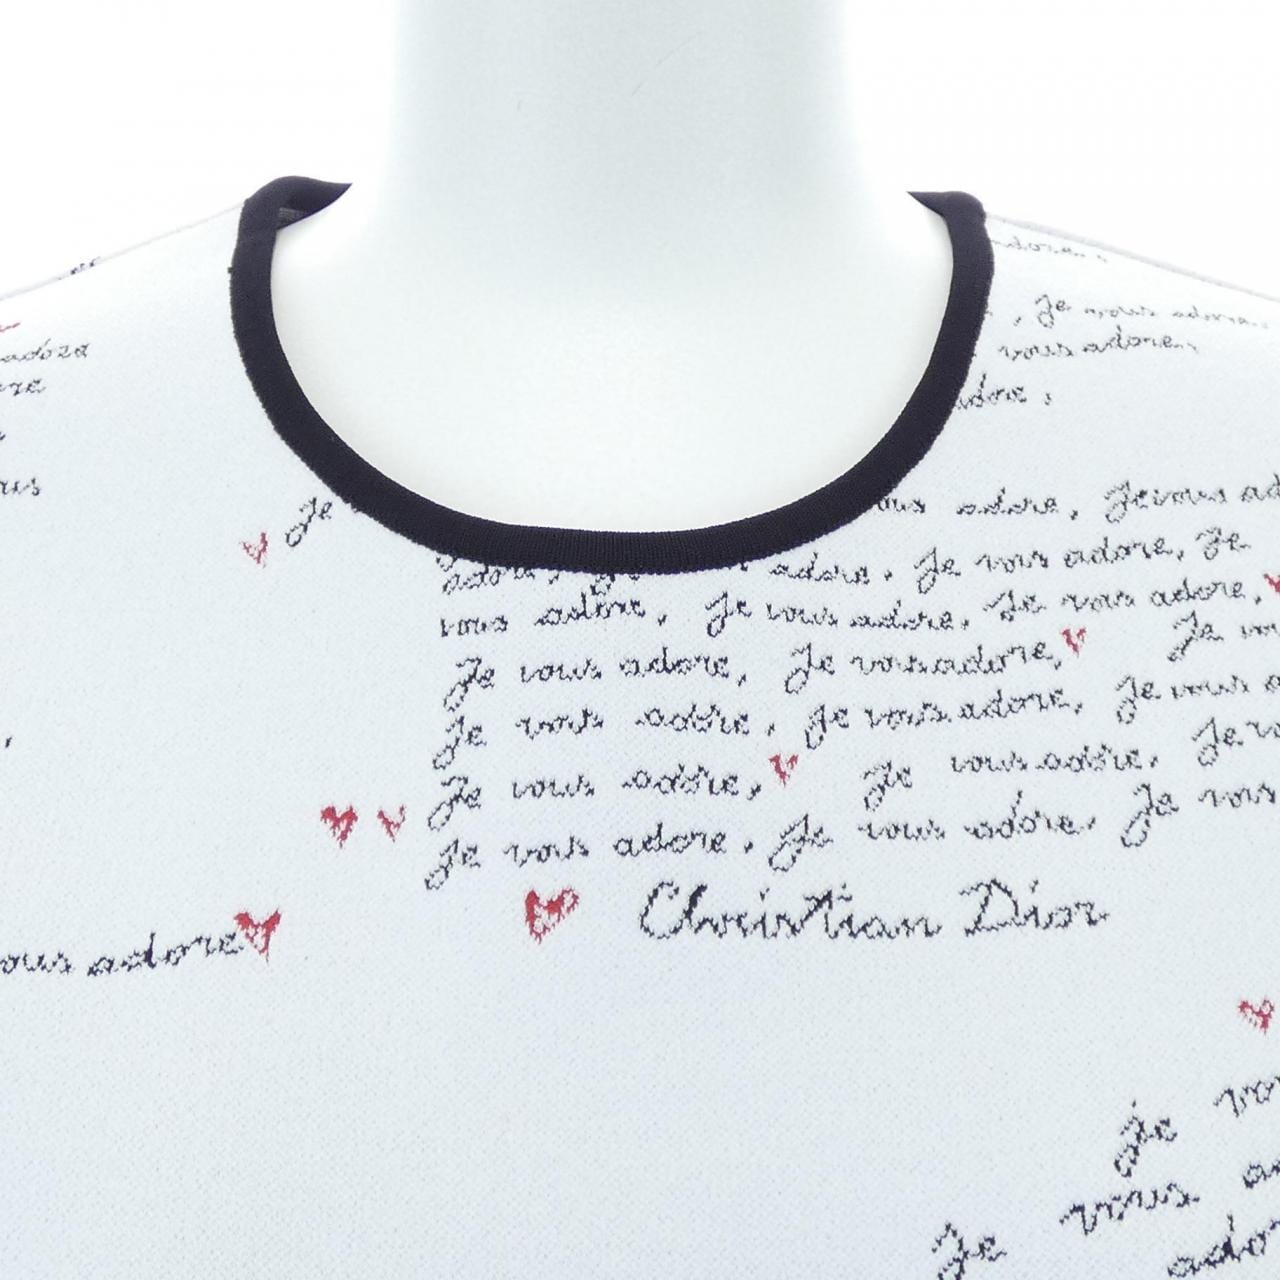 adore,
, Je vous adore,
vous adore,
adore,
adore
vous
Je vous adore, Je vous
adore, Je adore, Je vous adore, Je
vous adore, Je vous adore, Je vous adore,
Je vous adore, Je vous adore, Je
Je vous adore, Je vous adore, Je vous
Je vous adore, Je vous adore, Je
Je vous adore, Je vous adore, Je vous
Christian Dior
vous adore
Je
Je vous
vous
Je